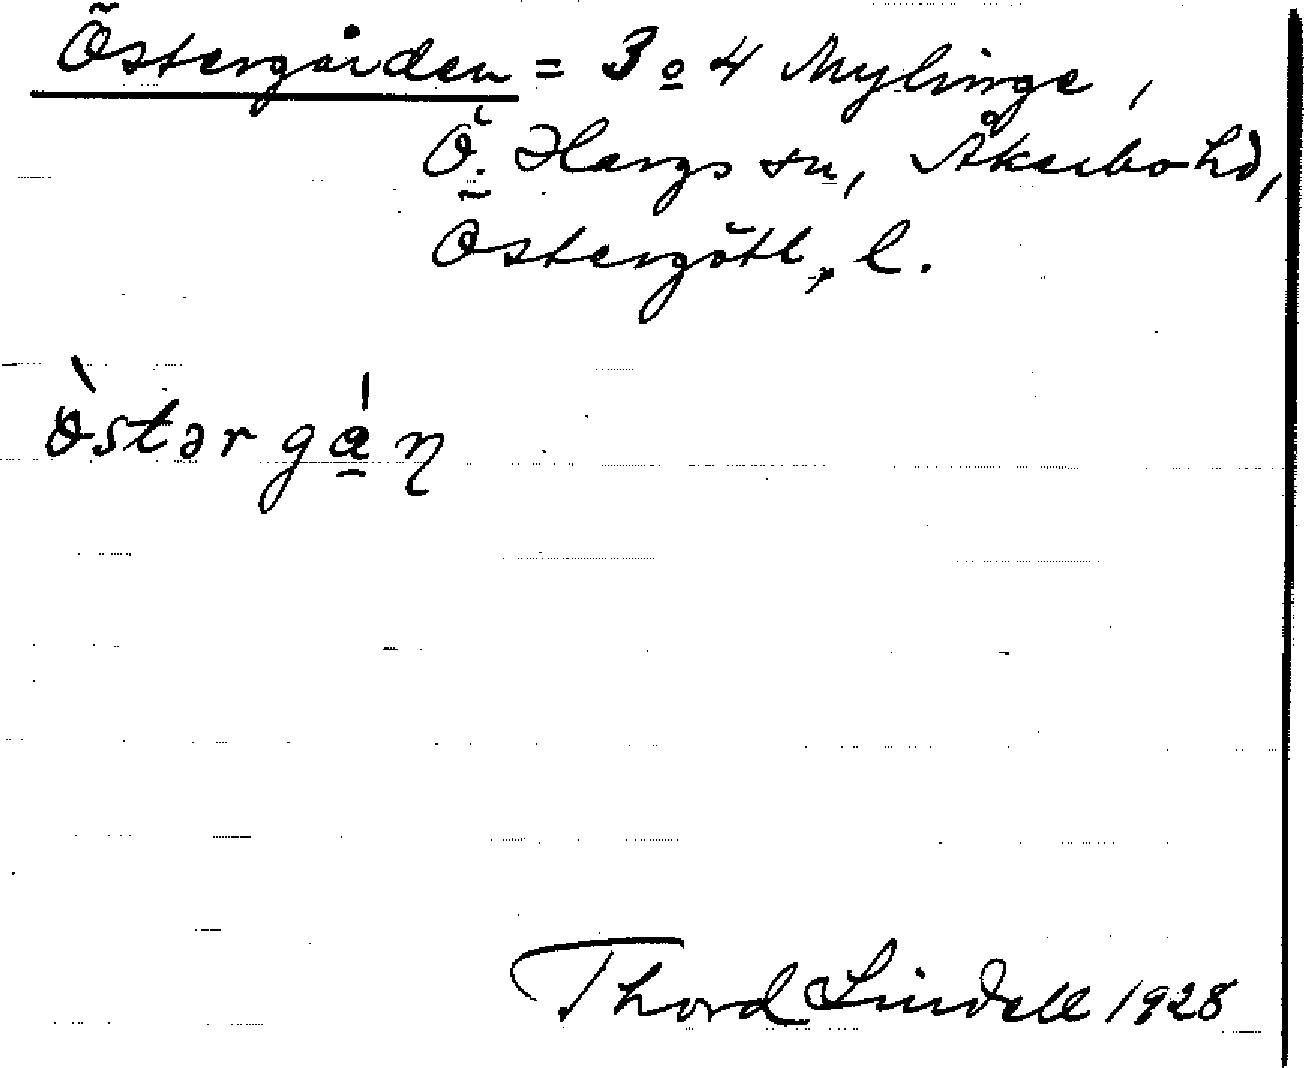 Östergården = 3 o 4 Mylinge,
Ö. Hargs sn, Åkerbo hd,
Östergötl. l.
ö̀stərgá̱ɳ
Thord Lindell 1928